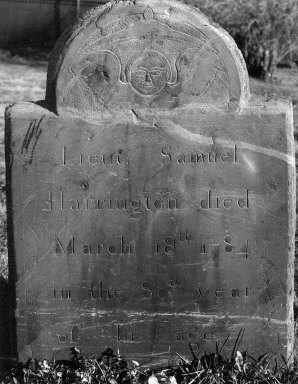 Lieut. Samuel
Harrington died
March 18th 1784
in the 80th year
of his age.